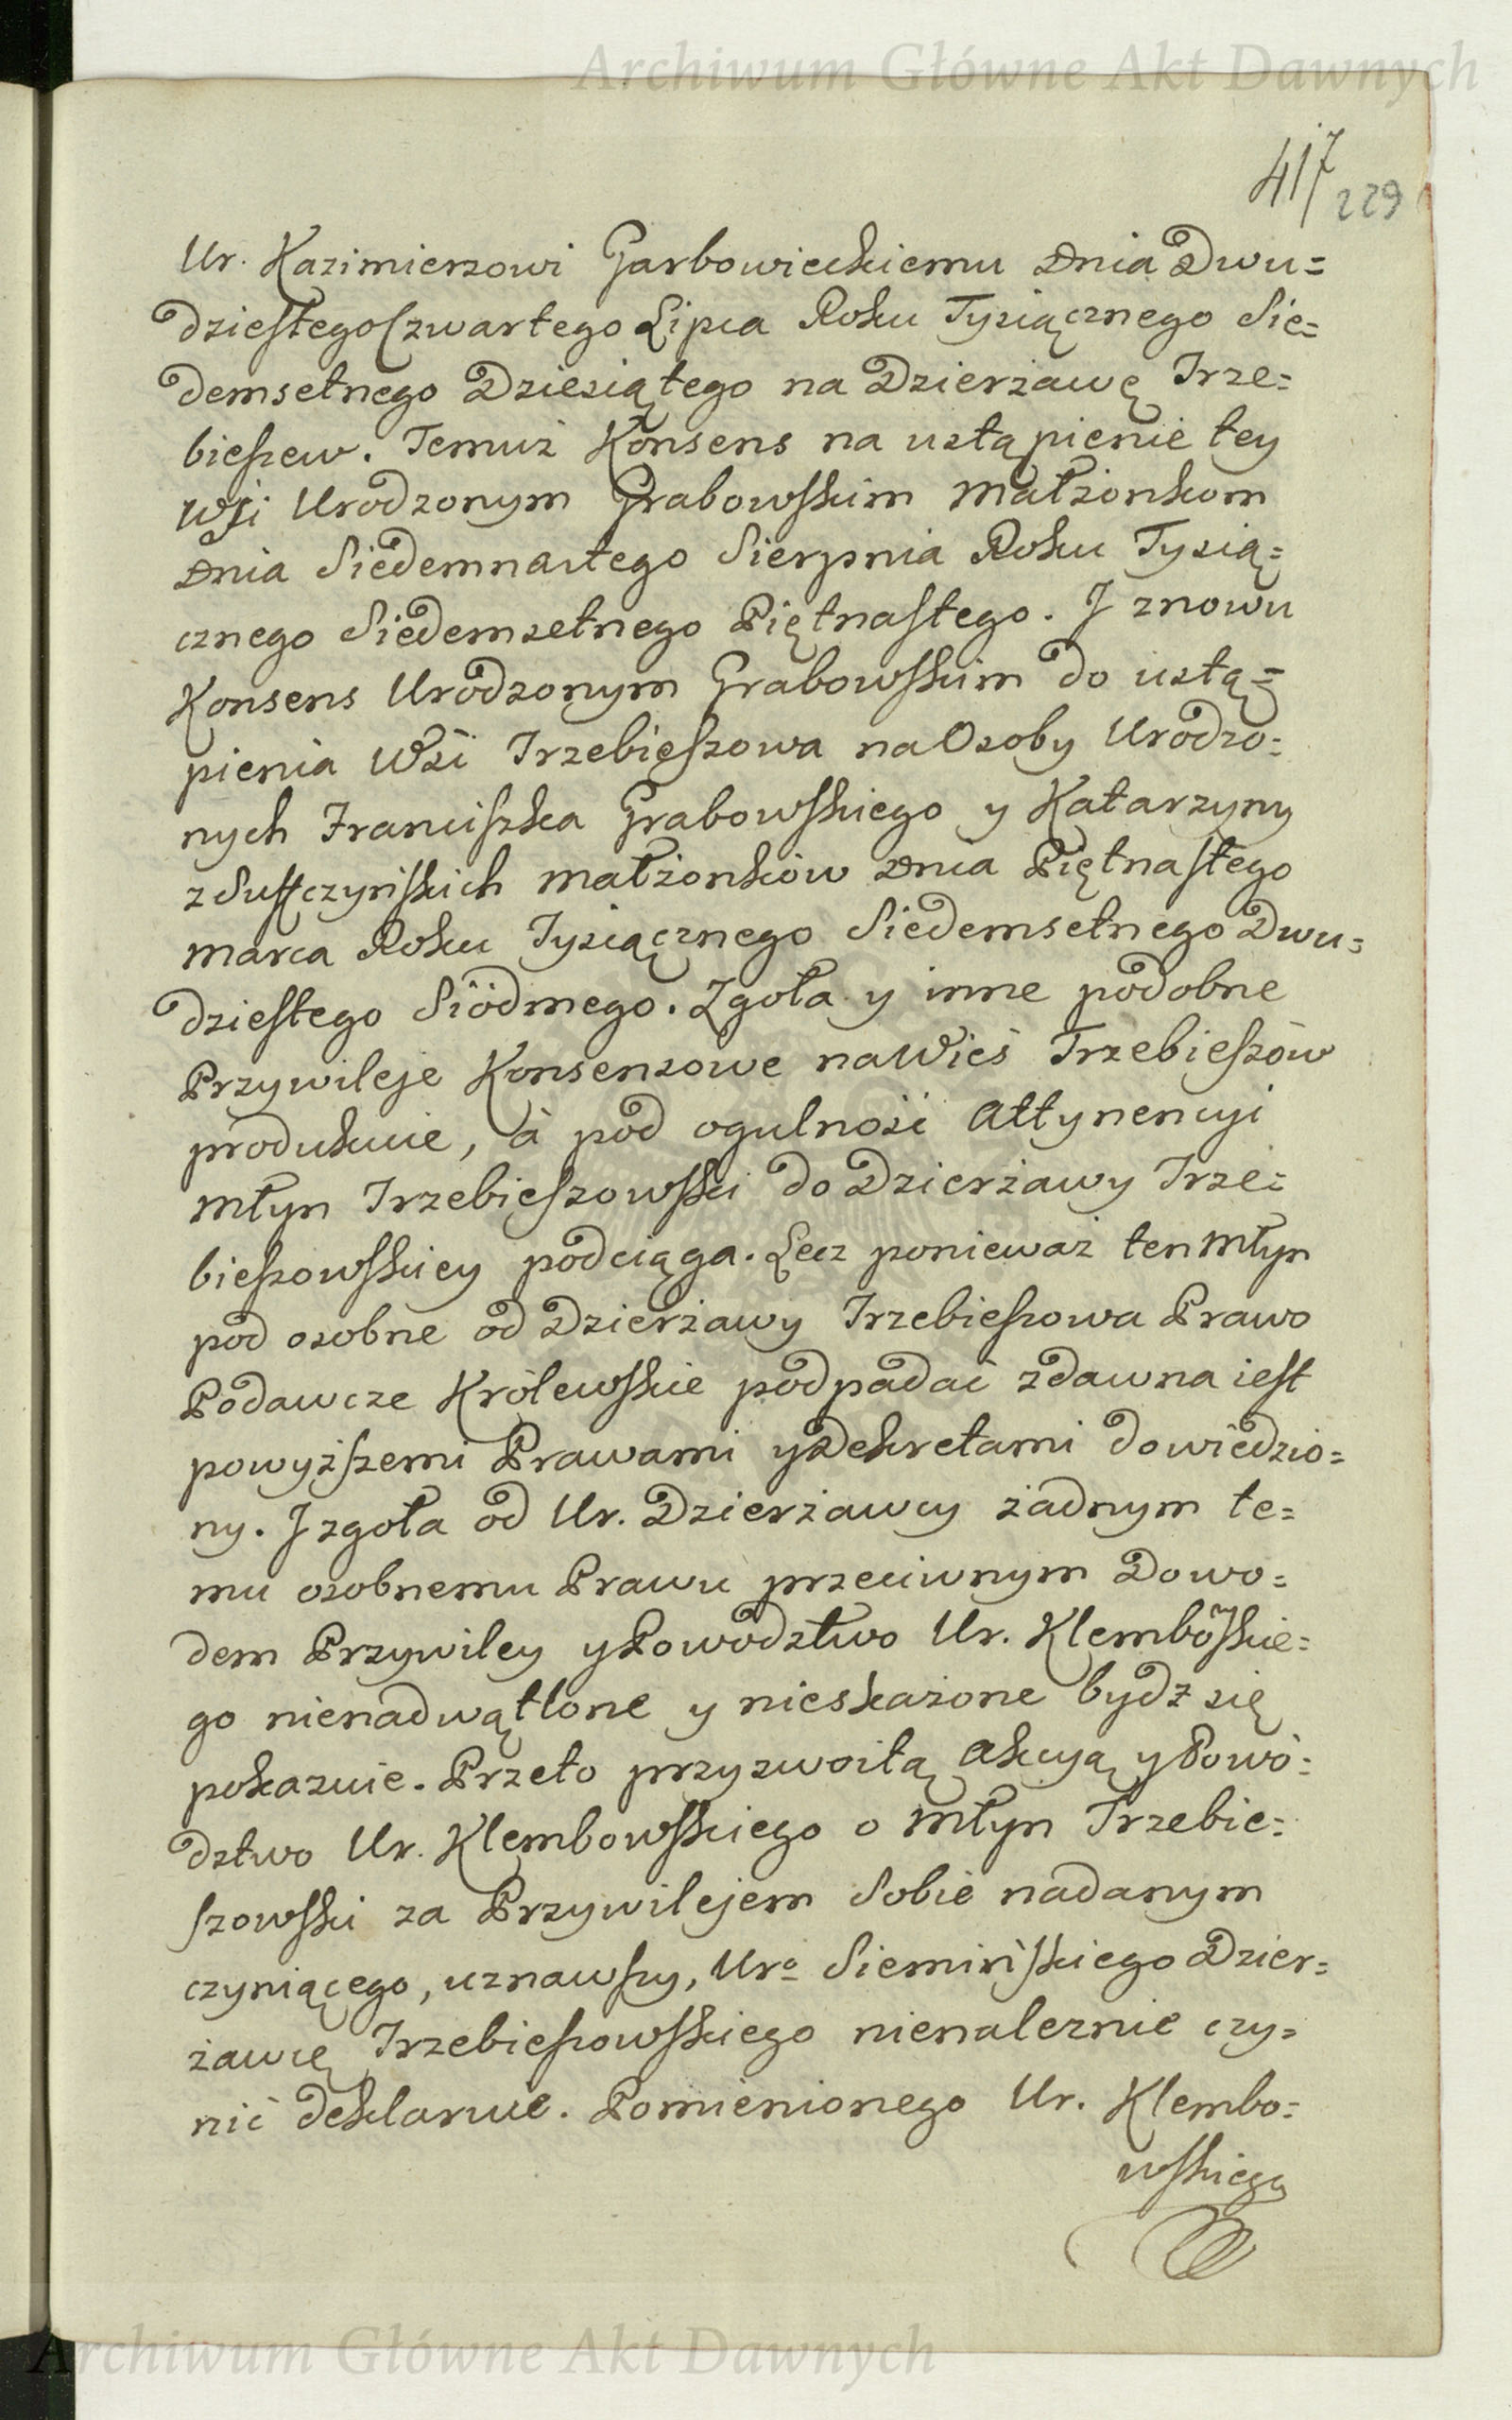 Archiwum Główne Akt Dawnych
417
229
Ur. Kazimierzowi Garbowieckiemu Dnia Dwu=
dziestego Czwartego Lipca Roku Tysiącznego Sie=
demsetnego Dziesiątego na Dzierżawę Trze=
bieszew. Temuż Konsens na ustąpienie tey
Wsi Urodzonym Grabowskim Małżonkom
Dnia Siedemnastego Sierpnia Roku Tysią=
cznego Siedemsetnego Piętnastego. I znowu
Konsens Urodzonym Grabowskim do ustą=
pienia Wsi Trzebieszowa na Osoby Urodzo=
nych Franciszka Grabowskiego y Katarzyny
z Suffczyńskich Małżonków Dnia Piętnastego
Marca Roku Tysiącznego Siedemsetnego Dwu=
dziestego Siódmego. Zgoła y inne podobne
Przywileje Konsensowe na Wieś Trzebieszów
produkuie, à pod ogulności Attynencyi
Młyn Trzebieszowski do Dzierżawy Trze=
bieszowskiey podciąga. Lecz ponieważ ten Młyn
pod osobne od Dzierżawy Trzebieszowa Prawo
Podawcze Królewskie podpadać zdawna iest
powyższemi Prawami y Dekretami dowiedzio=
ny. I zgoła od Ur. Dzierżawcy żadnym te=
mu osobnemu Prawu przeciwnym Dowo=
dem Przywiley y Powodztwo Ur. Klembowskie=
go nienadwątlone y nieskażone bydź się
pokazuie. Przeto przyzwoitą Akcyą y Powó=
dztwo Ur. Klembowskiego o Młyn Trzebie=
szowski za Przywilejem Sobie nadanym
czyniącego, uznawszy, Uro Siemińskiego Dzier=
żawcę Trzebieszowskiego nienależnie czy=
nić deklaruie. Pomienionego Ur. Klembo=
wskiego
Archiwum Główne Akt Dawnych